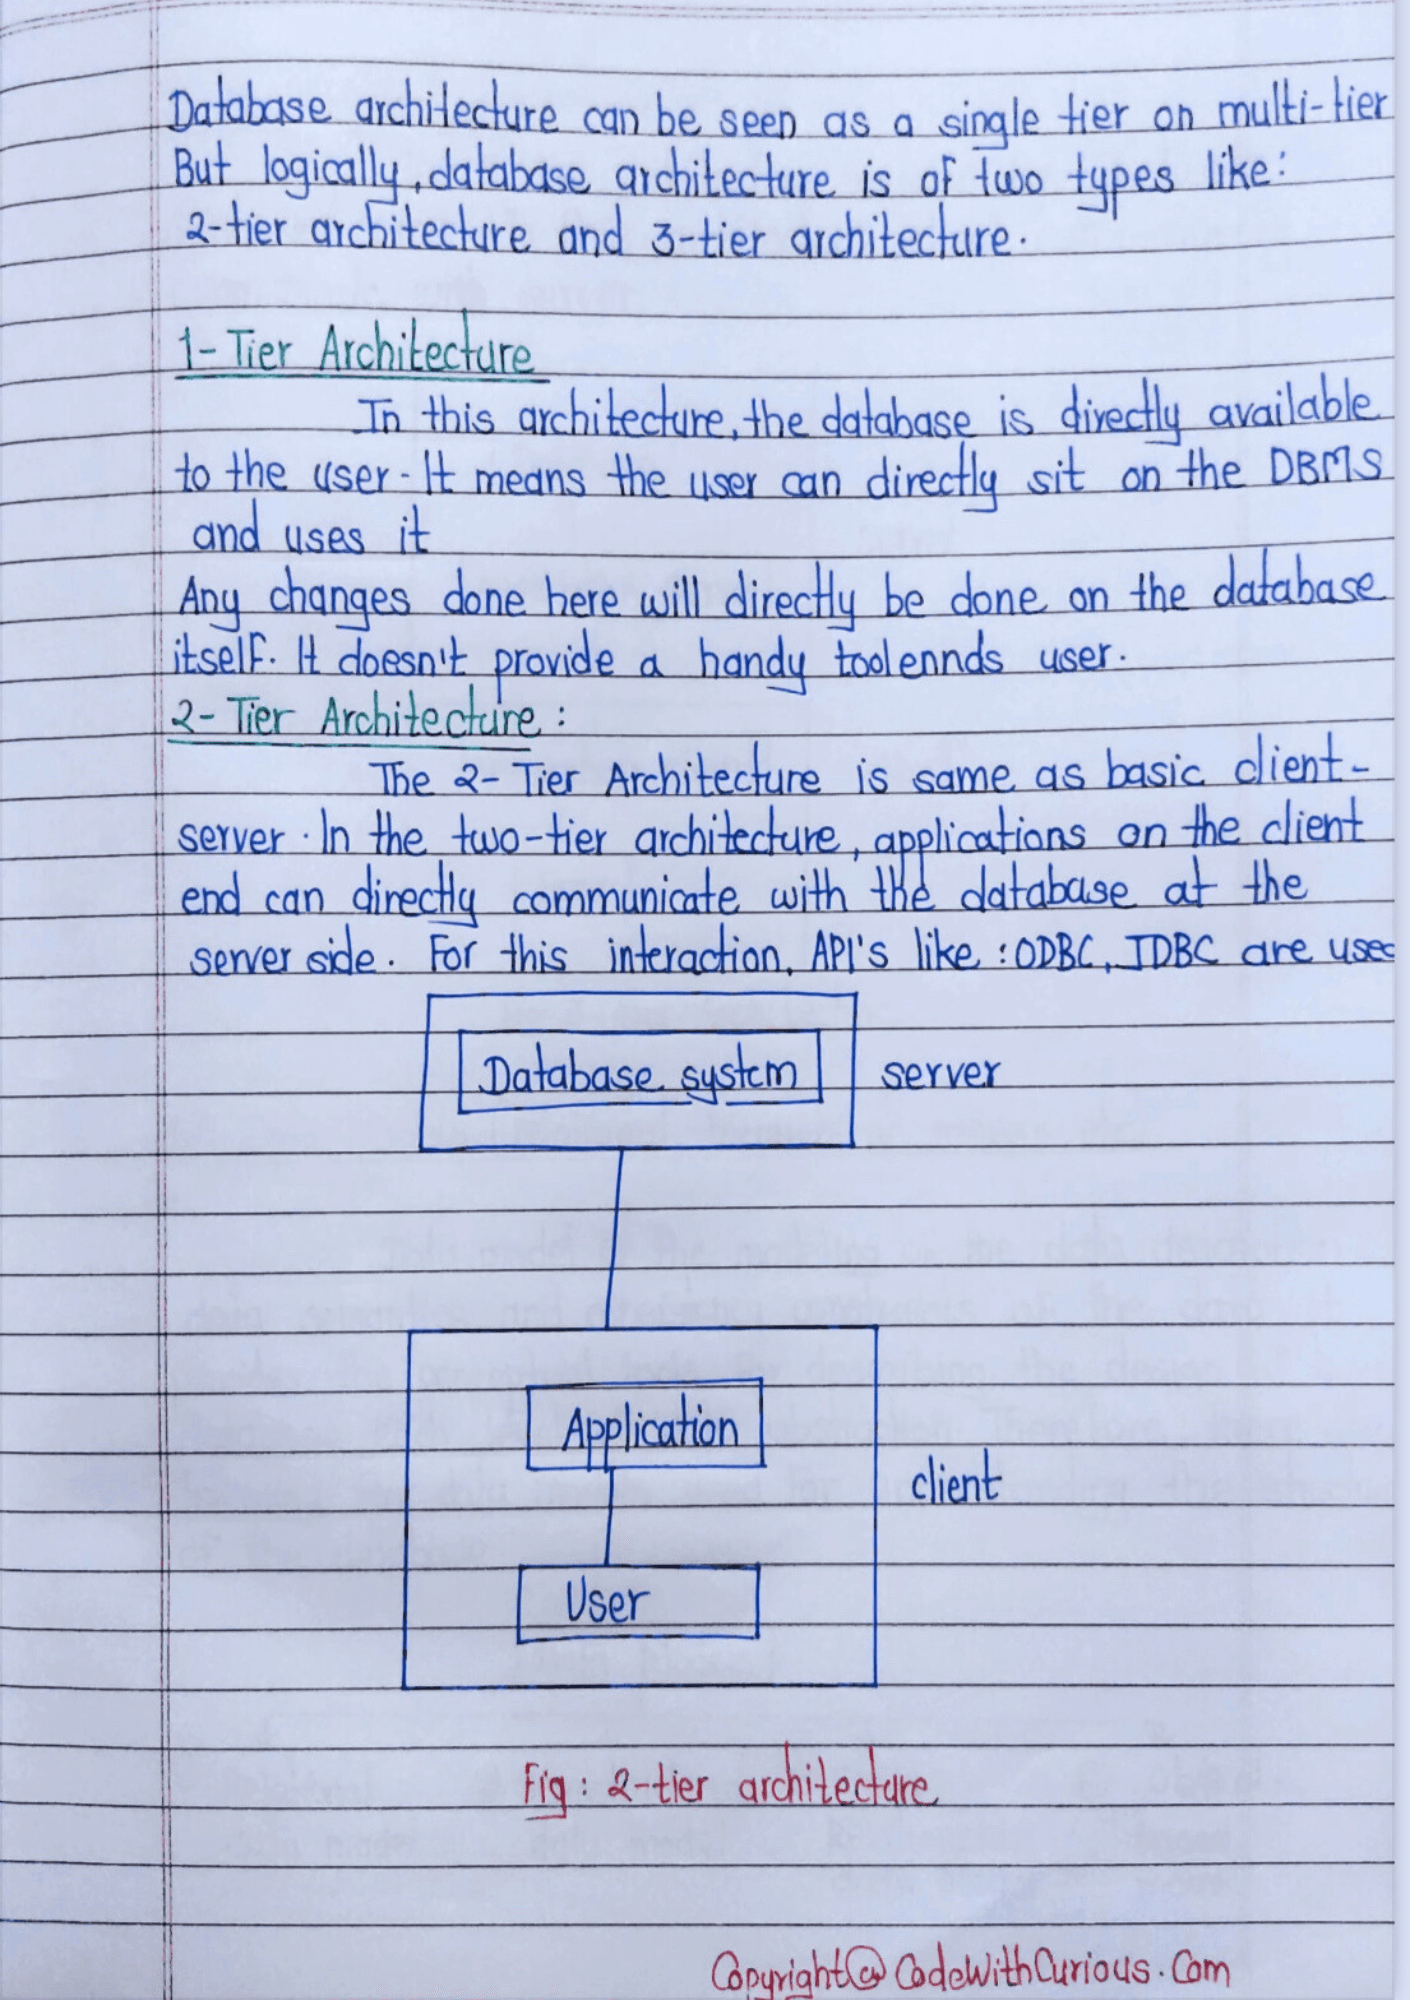 Database architecture can be seen as a single tier on multi-tier
But logically, database architecture is of two types like:
2-tier architecture and 3-tier architecture.
1- Tier Architecture
In this architecture, the database is directly available
to the user - It means the user can directly sit on the DBMS
and uses it
Any changes done here will directly be done on the database
itself. It doesn't provide a handy toolennds user.
2- Tier Architecture :
The 2- Tier Architecture is same as basic client-
server. In the two-tier architecture, applications on the client
end can directly communicate with the database at the
server side. For this interaction, API's like : ODBC, JDBC are used
Database system
server
Application
client
User
Fig : 2-tier architecture
Copyright@ CodeWithCurious.Com